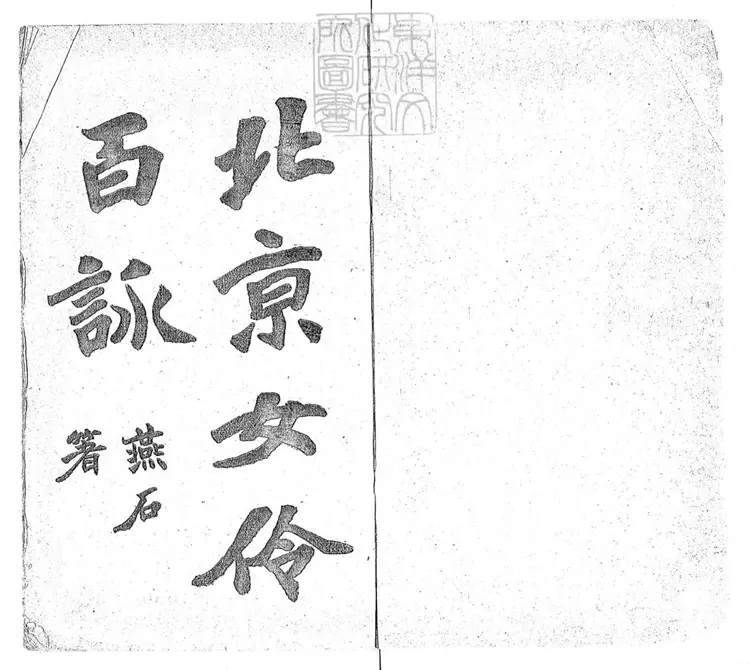 東洋文
化研究
所圖書
北京女伶
百詠
燕石
箸